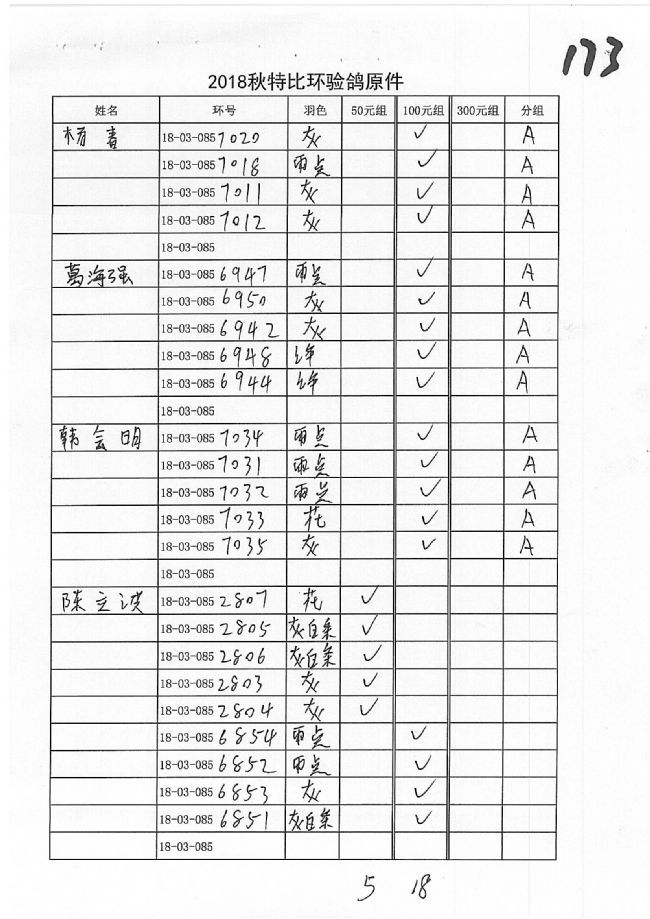 173
2018秋特比环验鸽原件
姓名 环号 羽色 50元组 100元组 300元组 分组
杨春 18-03-0857020 灰 ✓ A
18-03-0857018 雨点 ✓ A
18-03-0857011 灰 ✓ A
18-03-0857012 灰 ✓ A
18-03-085
葛海强 18-03-0856947 雨点 ✓ A
18-03-0856950 灰 ✓ A
18-03-0856942 灰 ✓ A
18-03-0856948 绛 ✓ A
18-03-0856944 绛 ✓ A
18-03-085
韩会明 18-03-0857034 雨点 ✓ A
18-03-0857031 雨点 ✓ A
18-03-0857032 雨点 ✓ A
18-03-0857033 花 ✓ A
18-03-0857035 灰 ✓ A
18-03-085
陈立洪 18-03-0852807 花 ✓
18-03-0852805 灰白条 ✓
18-03-0852806 灰白条 ✓
18-03-0852803 灰 ✓
18-03-0852804 灰 ✓
18-03-0856854 雨点 ✓
18-03-0856852 雨点 ✓
18-03-0856853 灰 ✓
18-03-0856851 灰白条 ✓
18-03-085
5 18